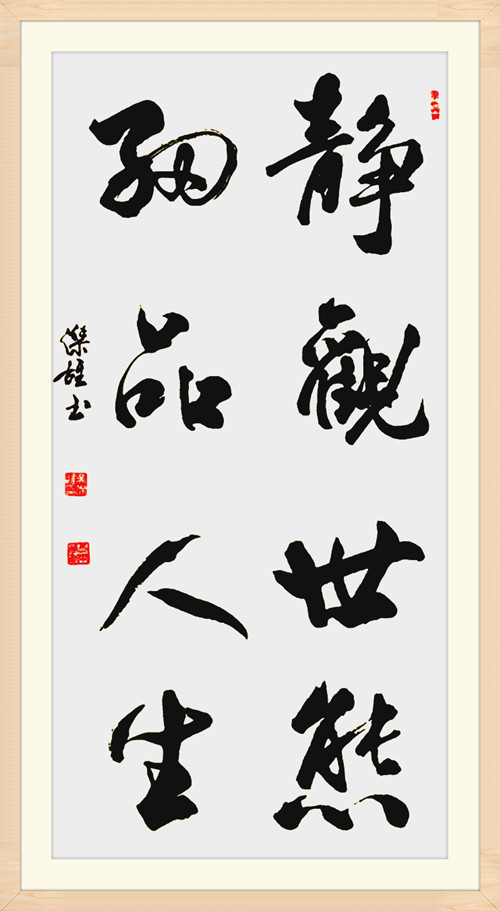 静觀世態
細品人生
傑雄书